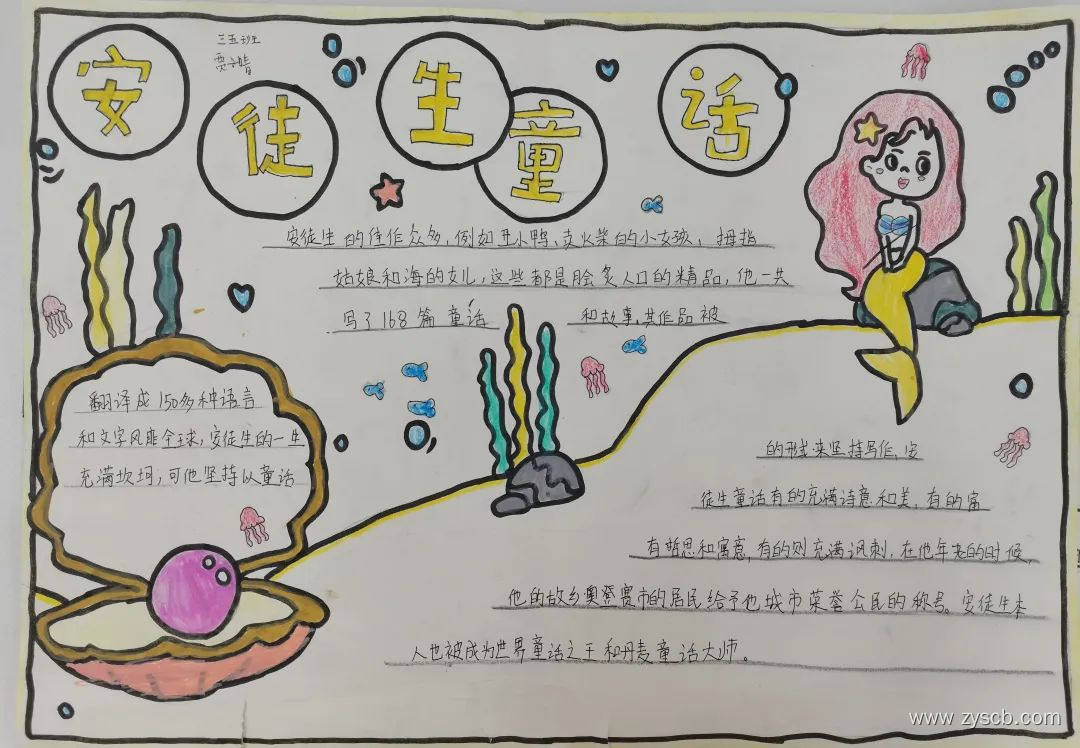 安徒生童话
三五班
安徒生的佳作众多，例如丑小鸭、卖火柴的小女孩，拇指
姑娘和海的女儿，这些都是脍炙人口的精品，他一共
写了168篇童话
和故事，其作品被
翻译成150多种语言
和文字风靡全球，安徒生的一生
充满坎坷，可他坚持以童话
的形式来坚持写作，安
徒生童话有的充满诗意和美，有的富
有哲思和寓意，有的则充满讽刺，在他年老的时候，
他的故乡奥登赛市的居民给予他城市荣誉公民的称号。安徒生本
人也被成为世界童话之王和丹麦童话大师。
www.zyscb.com